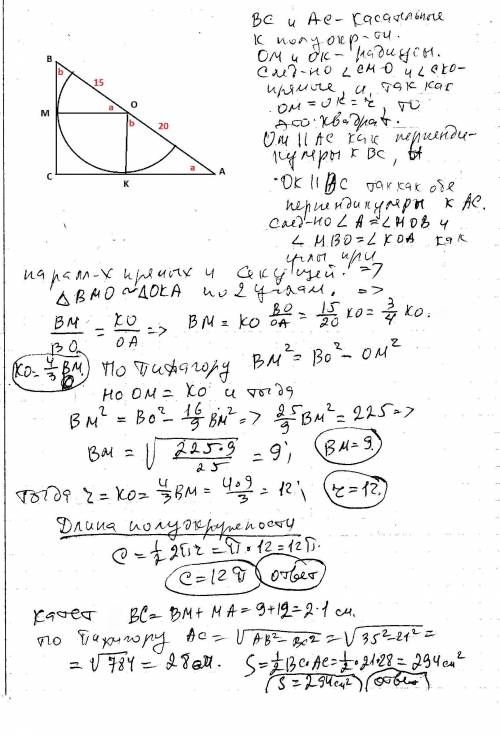 BC и AC - касательные
к полуокр-сти.
OM и OK - радиусы.
След-но ∠CMO и ∠CKO -
прямые, и, так как
OM = OK = r, то
квадрат.
OM || AC как перпенди-
куляры к BC, и
OK || BC так как оба
перпендикуляры к AC.
След-но ∠A = ∠MOB и
∠MBO = ∠KOA как
углы при
B
b
15
M
a
O
b
20
a
C
K
A
паралл-х прямых и секущей. =>
△BMO ~ △OKA по 2 углам. =>
BM/BO = KO/OA => BM = KO BO/OA = 15/20 KO = 3/4 KO.
KO = 4/3 BM. По Пифагору BM² = BO² - OM²
но OM = KO и тогда
BM² = BO² - 16/9 BM² => 25/9 BM² = 225 =>
BM = √(225·9/25) = 9; BM = 9.
тогда r = KO = 4/3 BM = 4·9/3 = 12; r = 12.
Длина полуокружности
C = 1/2 2πr = π·12 = 12π.
C = 12π ответ
катет BC = BM + MA = 9 + 12 = 2·1 см.
по Пифагору AC = √(AB² - BC²) = √(35² - 21²) =
= √784 = 28 см. S = 1/2 BC·AC = 1/2·21·28 = 294 см²
S = 294 см² ответ